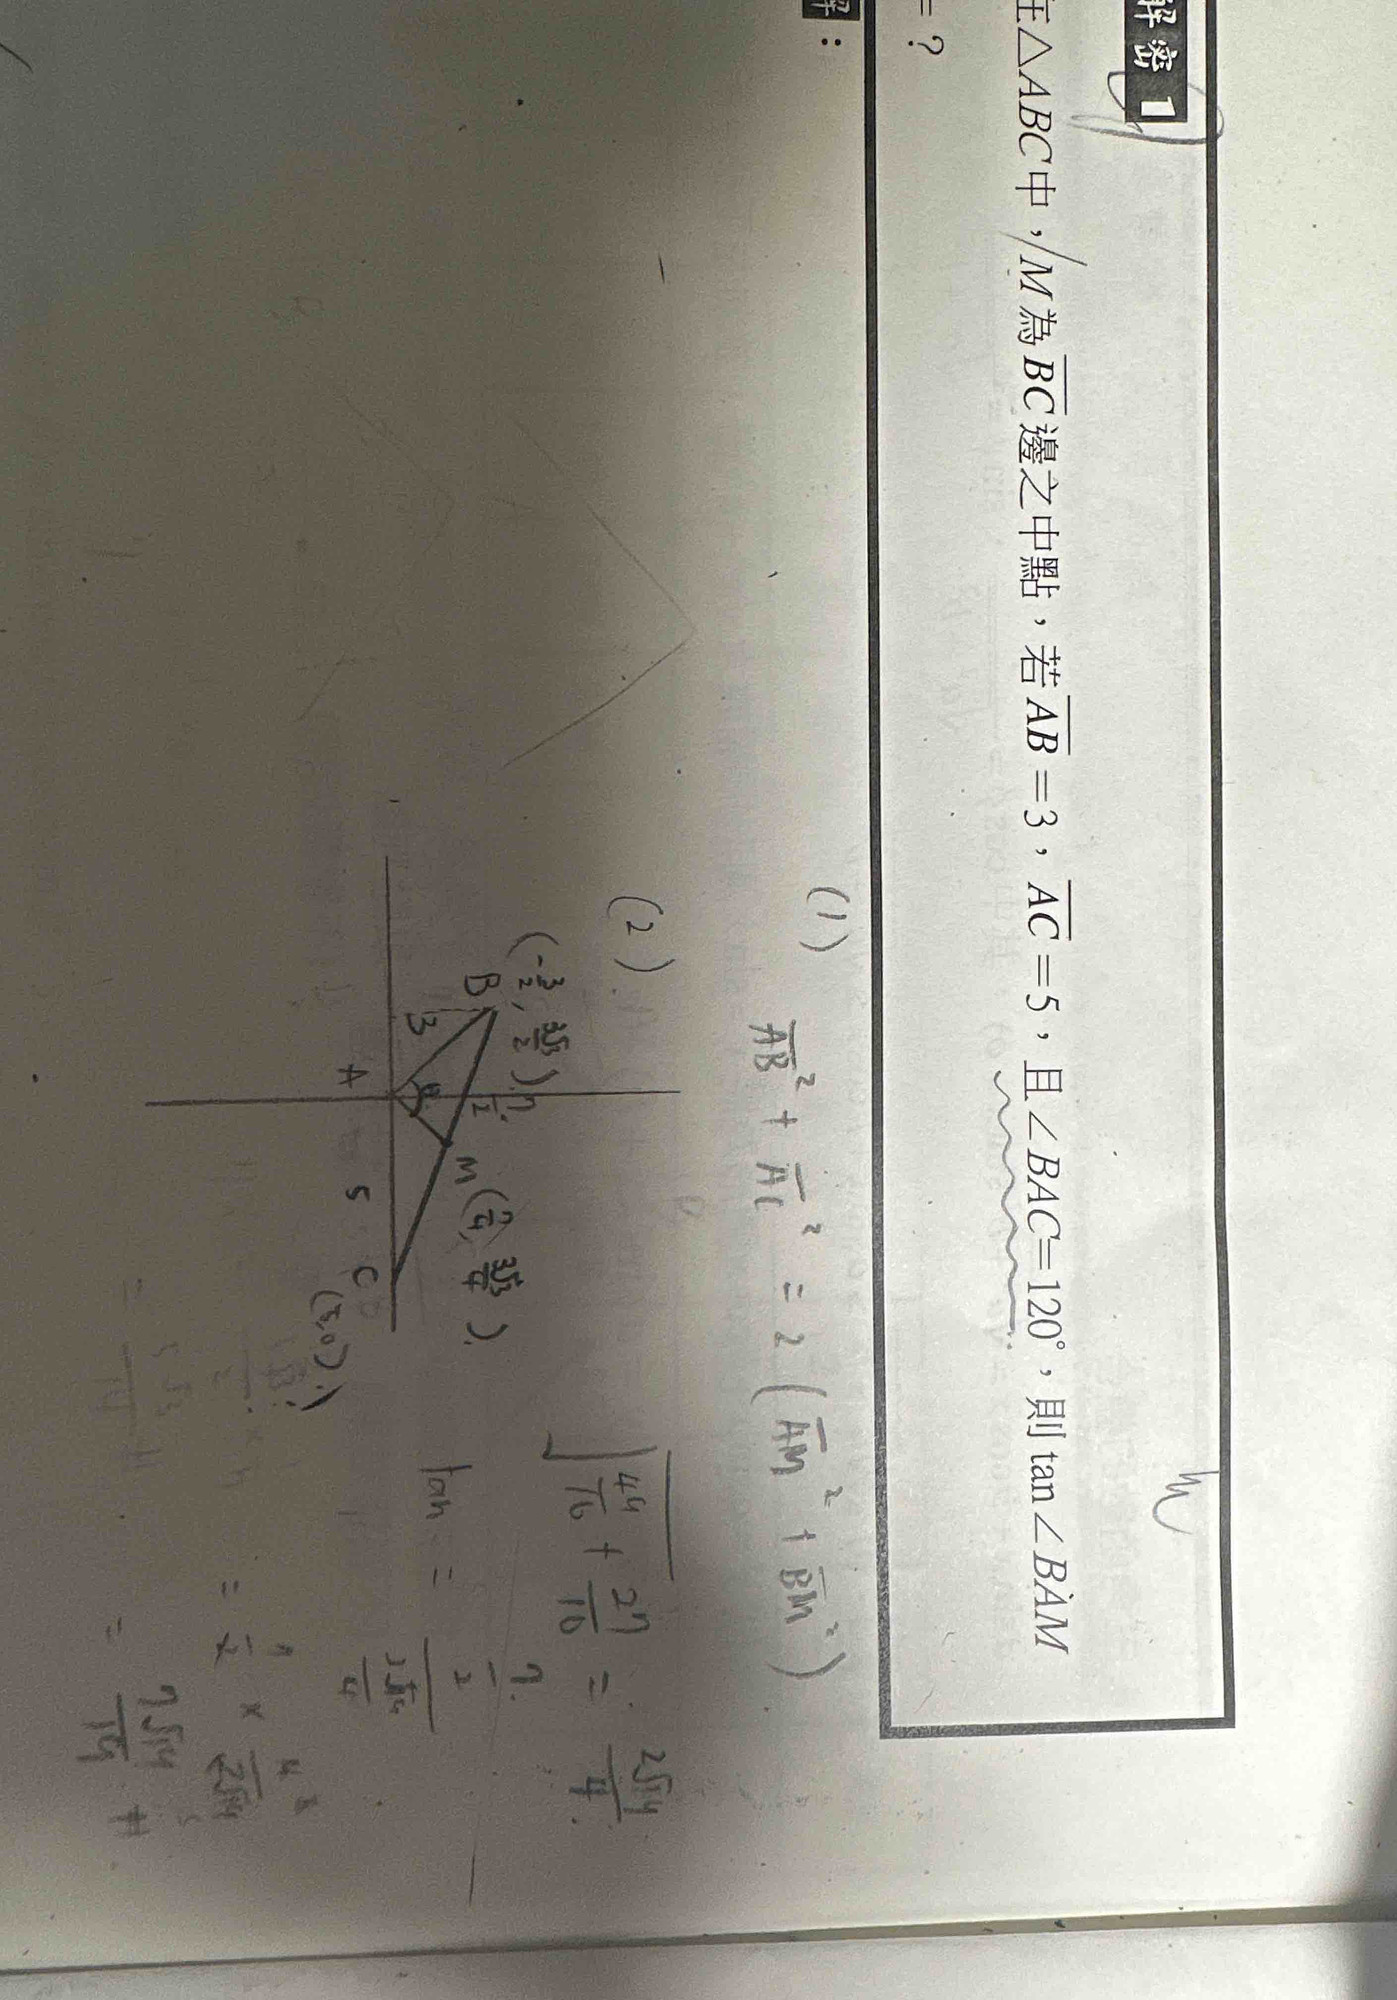 解密 1
在△ABC中，M為BC邊之中點，若AB=3，AC=5，且∠BAC=120°，則tan∠BAM
=？
解：
(1) AB² + AC² = 2 (AM² + BM²)
(2)
(-3/2, 3√3/2)
B
3
A
θ
7/2
M (7/4, 3√3/4)
5
C
(5,0)
√(49/16 + 27/16) = 2√19/4
tan =
= 7/2 × 4/2√19
= 7√19/19 #